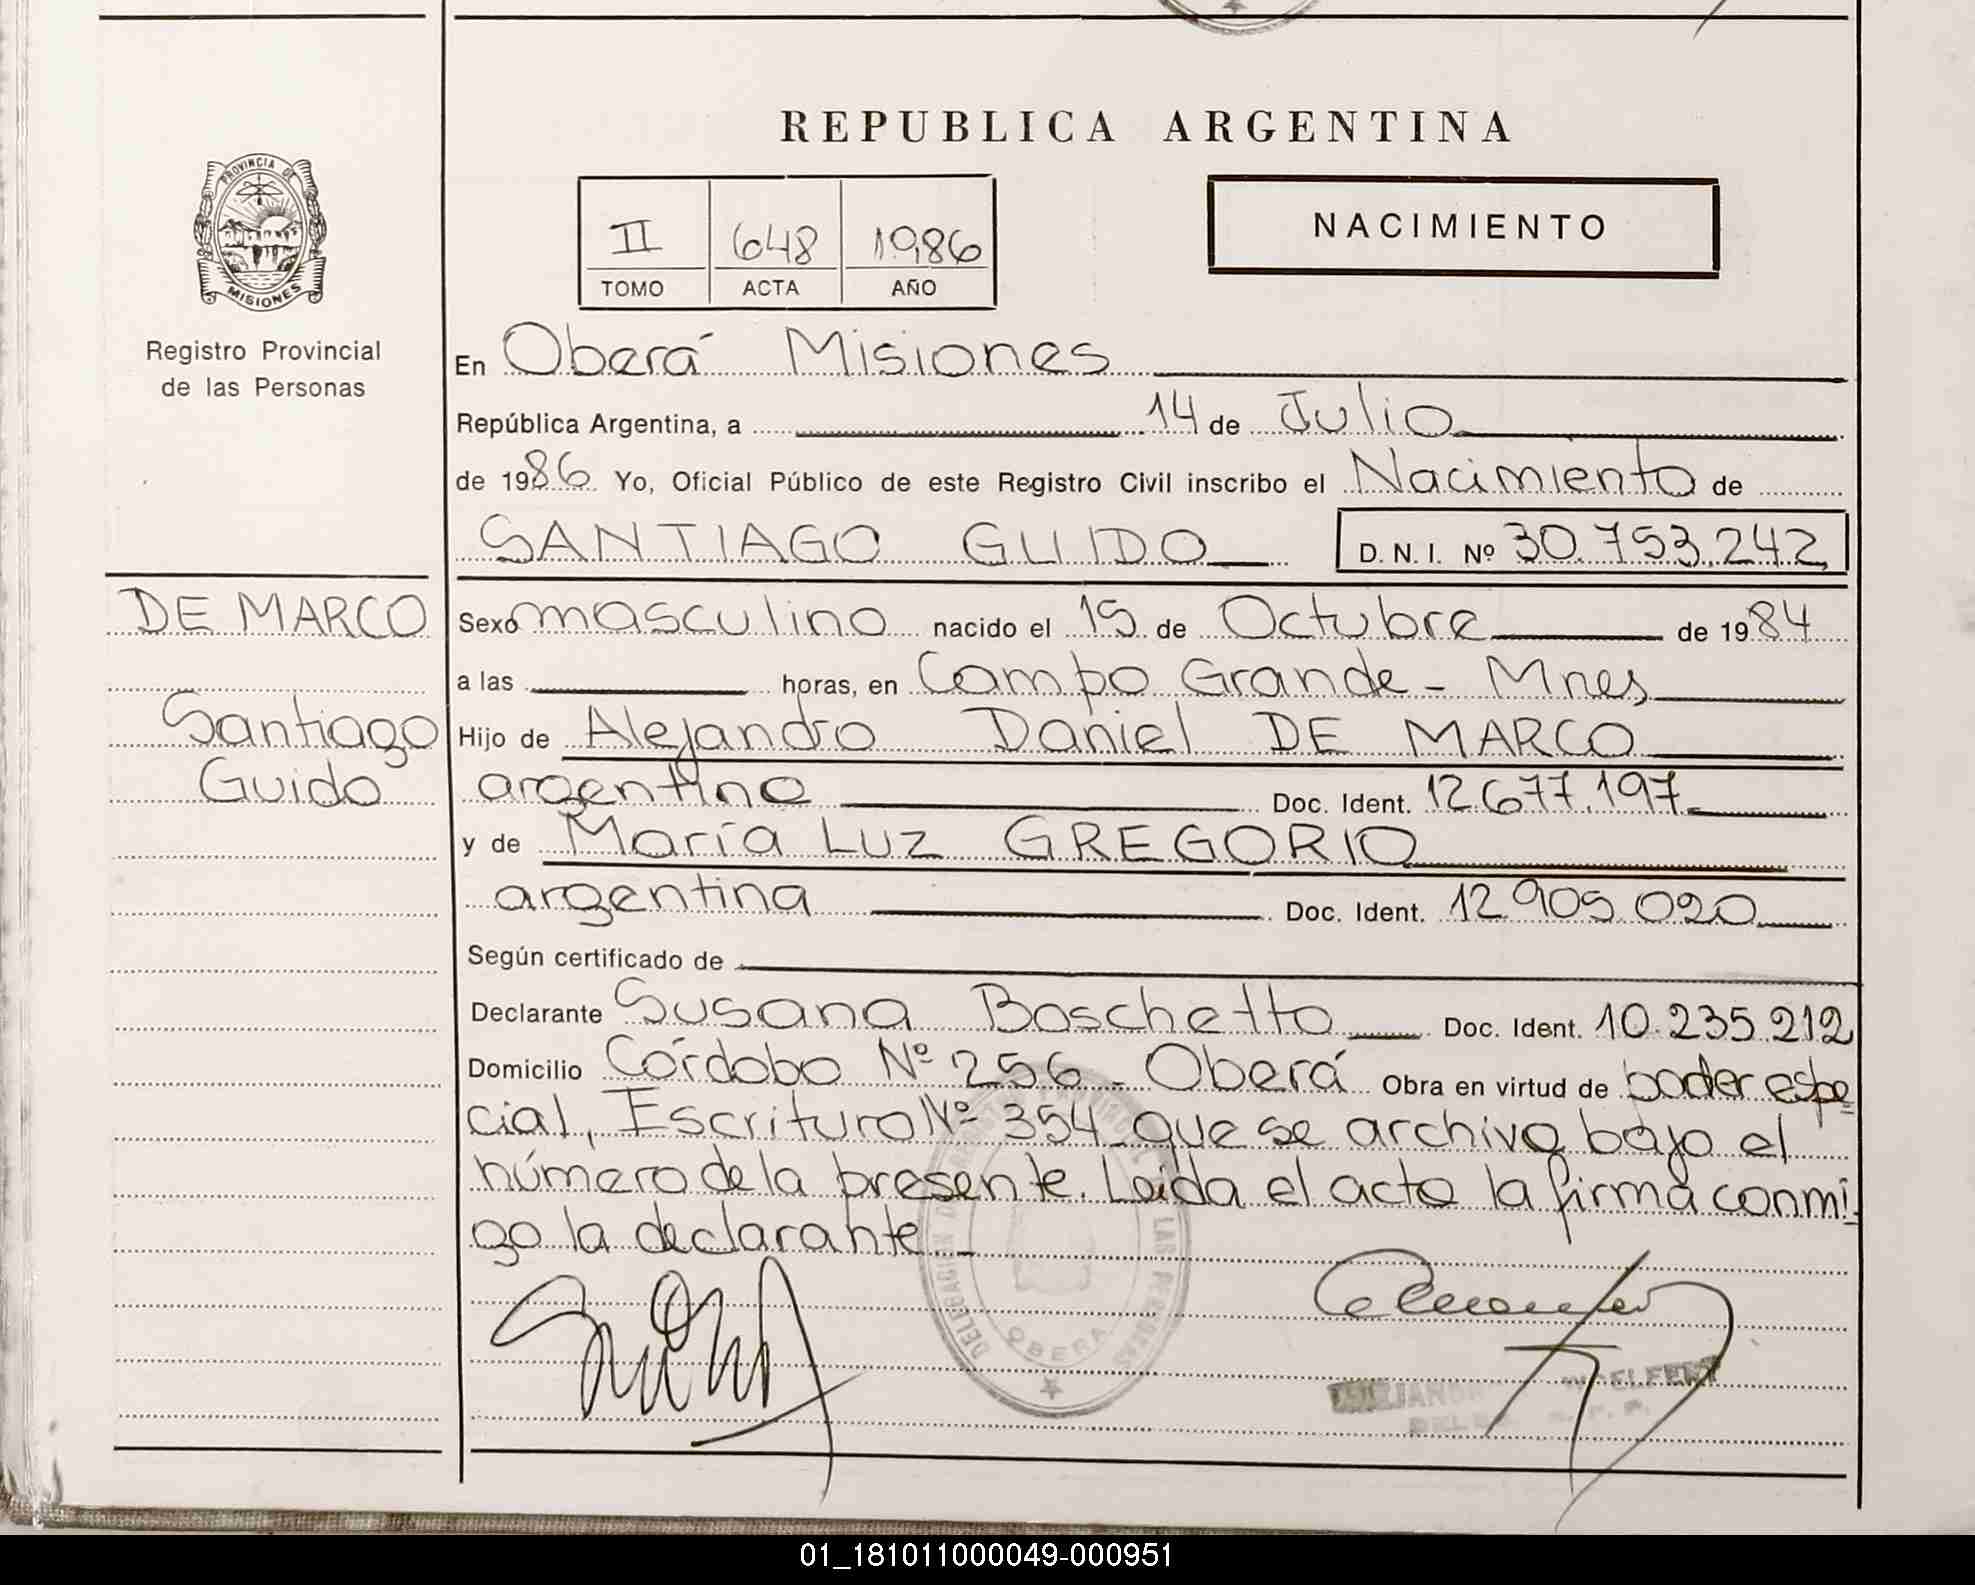 REPUBLICA ARGENTINA
PROVINCIA DE
MISIONES
Registro Provincial
de las Personas
II 648 1986
TOMO ACTA AÑO
NACIMIENTO
En Oberá Misiones
República Argentina, a 14 de Julio
de 1986 Yo, Oficial Público de este Registro Civil inscribo el Nacimiento de
SANTIAGO GUIDO D. N. I. Nº 30.753.242
DE MARCO
Santiago
Guido
Sexo masculino nacido el 15 de Octubre de 1984
a las horas, en Campo Grande - Mnes
Hijo de Alejandro Daniel DE MARCO
argentino Doc. Ident. 12.677.197
y de María Luz GREGORIO
argentina Doc. Ident. 12 905 020
Según certificado de
Declarante Susana Boschetto Doc. Ident. 10.235.212
Domicilio Córdoba Nº 256 - Oberá Obra en virtud de poder espe
cial, Escritura Nº 354 que se archiva bajo el
número de la presente. Leída el acta la firma conmi
go la declarante -
DELEGACION LAS PERSONAS
OBERA
01_181011000049-000951